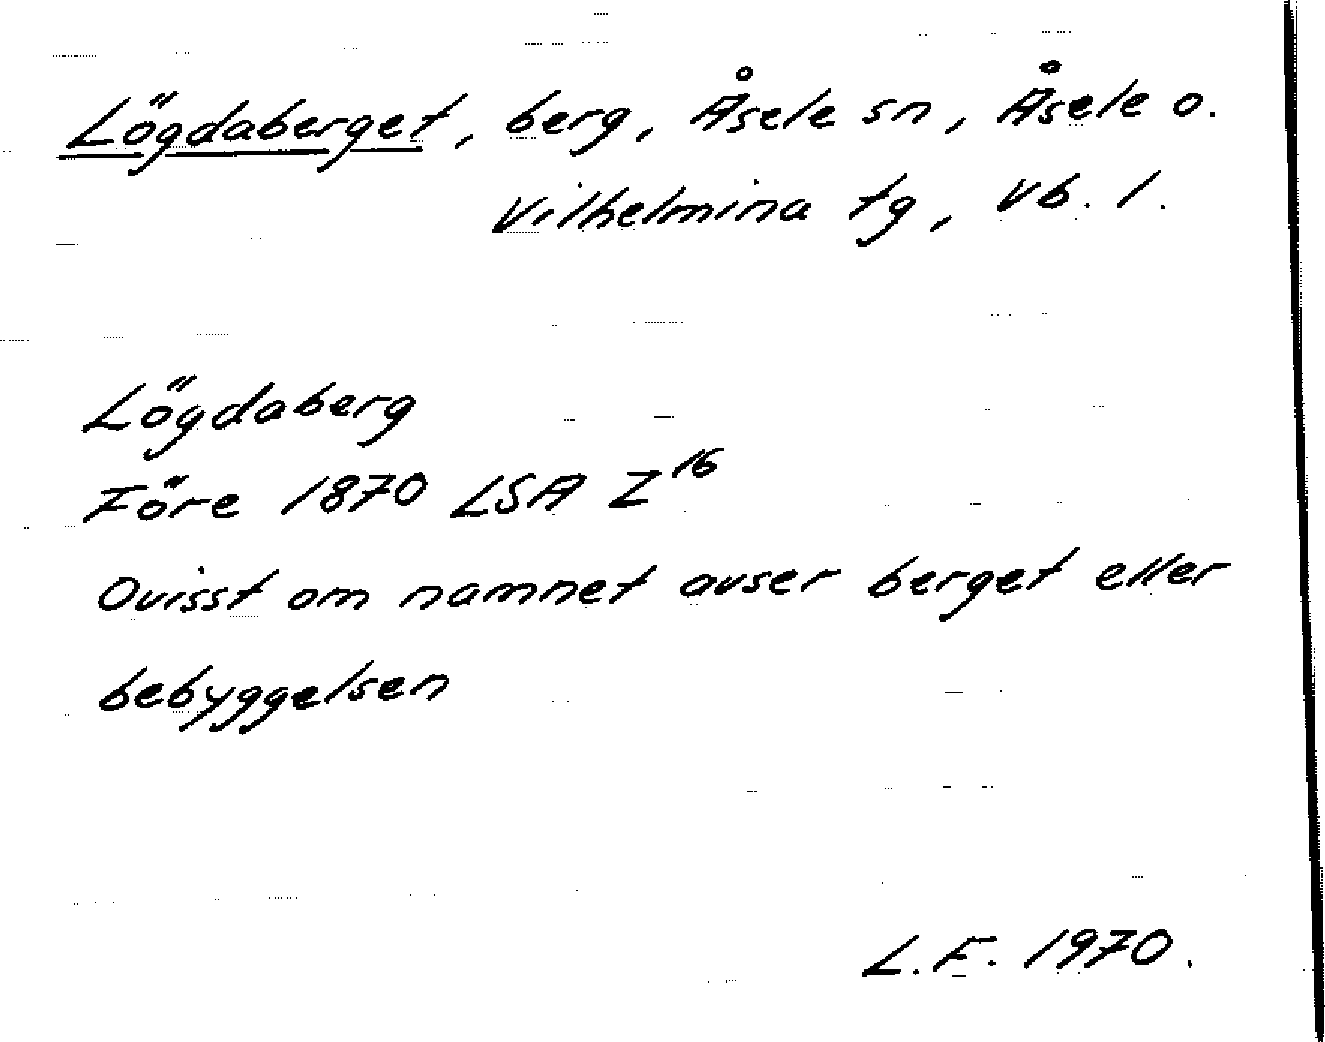 Lögdaberget, berg, Åsele sn, Åsele o.
Vilhelmina tg, Vb. l.
Lögdaberg
Före 1870 LSA Z16
Ovisst om namnet avser berget eller
bebyggelsen
L.F. 1970.